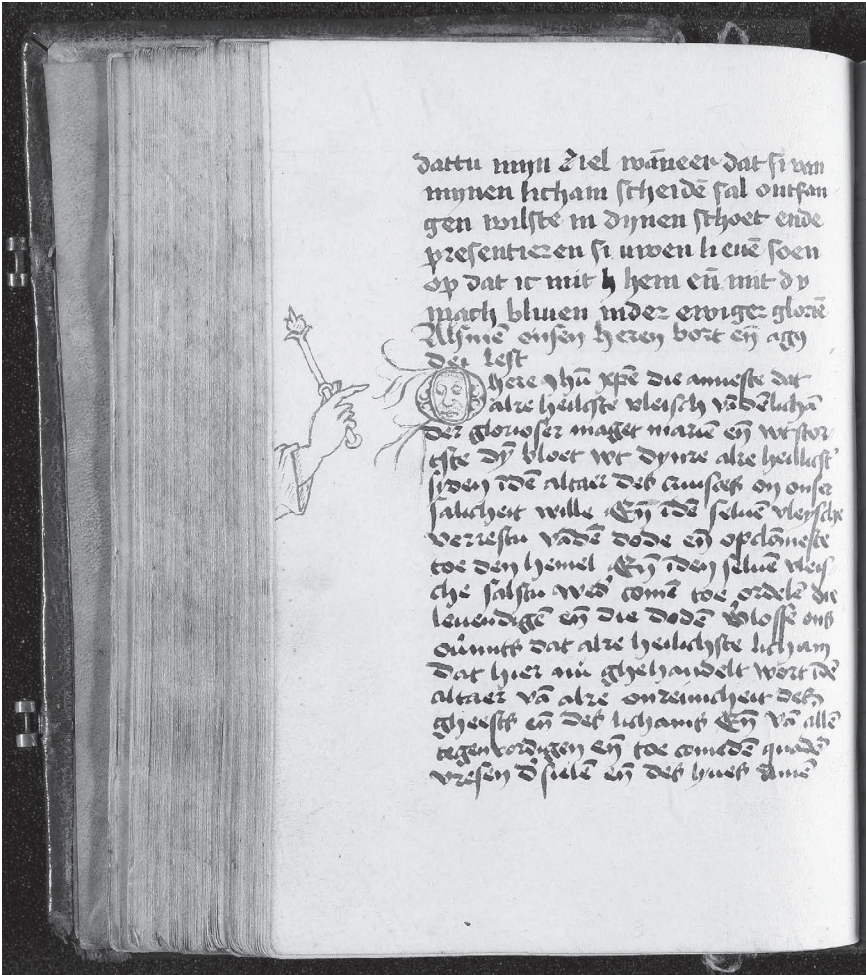 dattu mijn ziel wāneer dat si van
mijnen licham scheidē sal ontfan
gen wilste in dijnen schoet ende
presentieren si uwen lieuē soen
op dat ic mit h hem eñ mit dy
mach bliuen inder ewiger gloriē
Alsmē onsen heren bort eñ agn
dei lest
O here ihū xpē die annieste dat
alre heilichste vleisch vādē lichā
der glorioser maget mariē eñ wtstor
tste dȳ bloet wt dynre alre heilichst'
syden īdē altaer des cruces om onser
salicheit wille Eñ īdē seluē vleysche
verrestu vādē dode eñ opclōmeste
toe den hemel Eñ īden seluē vleis
che salstu wed' comē toe ordelē die
leuendigen eñ die dodē v'losse ons
ou'mits dat alre heilichste licham
dat hier nu ghehandelt wort īdē
altaer vā alre onreinicheit des
gheests eñ des lichams Eñ vā allē
tegenwordigen eñ toe comēdē quadē
vresen d' sielē eñ des liues Amē